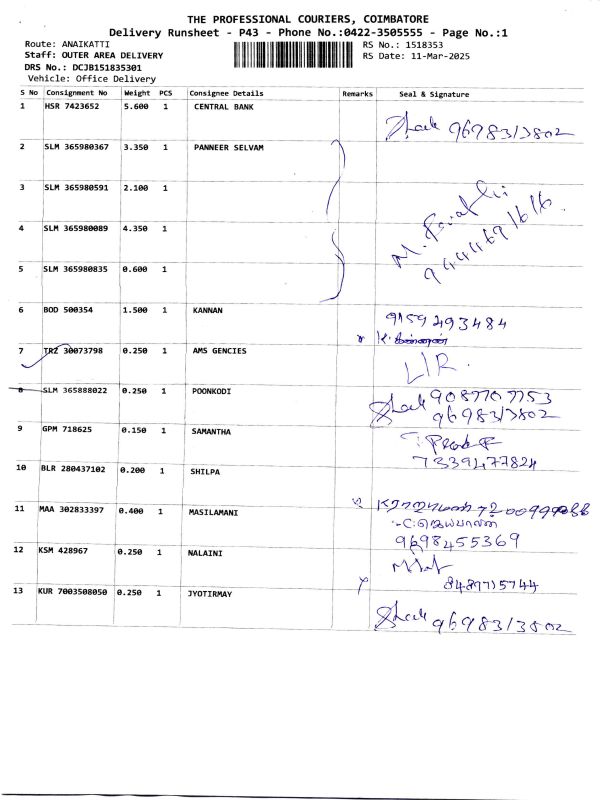 THE PROFESSIONAL COURIERS, COIMBATORE
Delivery Runsheet - P43 - Phone No.:0422-3505555 - Page No.:1
Route: ANAIKATTI RS No.: 1518353
Staff: OUTER AREA DELIVERY RS Date: 11-Mar-2025
DRS No.: DCJB151835301
Vehicle: Office Delivery
S No Consignment No Weight PCS Consignee Details Remarks Seal & Signature
1 HSR 7423652 5.600 1 CENTRAL BANK
9698313802
2 SLM 365980367 3.350 1 PANNEER SELVAM
3 SLM 365980591 2.100 1
4 SLM 365980089 4.350 1
5 SLM 365980835 0.600 1
6 BOD 500354 1.500 1 KANNAN
9159493484
7 TRZ 30073798 0.250 1 AMS GENCIES
8 SLM 365888022 0.250 1 POONKODI
9087707753
9698313802
9 GPM 718625 0.150 1 SAMANTHA
7339477824
10 BLR 280437102 0.200 1 SHILPA
11 MAA 302833397 0.400 1 MASILAMANI
9698455369
12 KSM 428967 0.250 1 NALAINI
8489715744
13 KUR 7003508050 0.250 1 JYOTIRMAY
9698313802